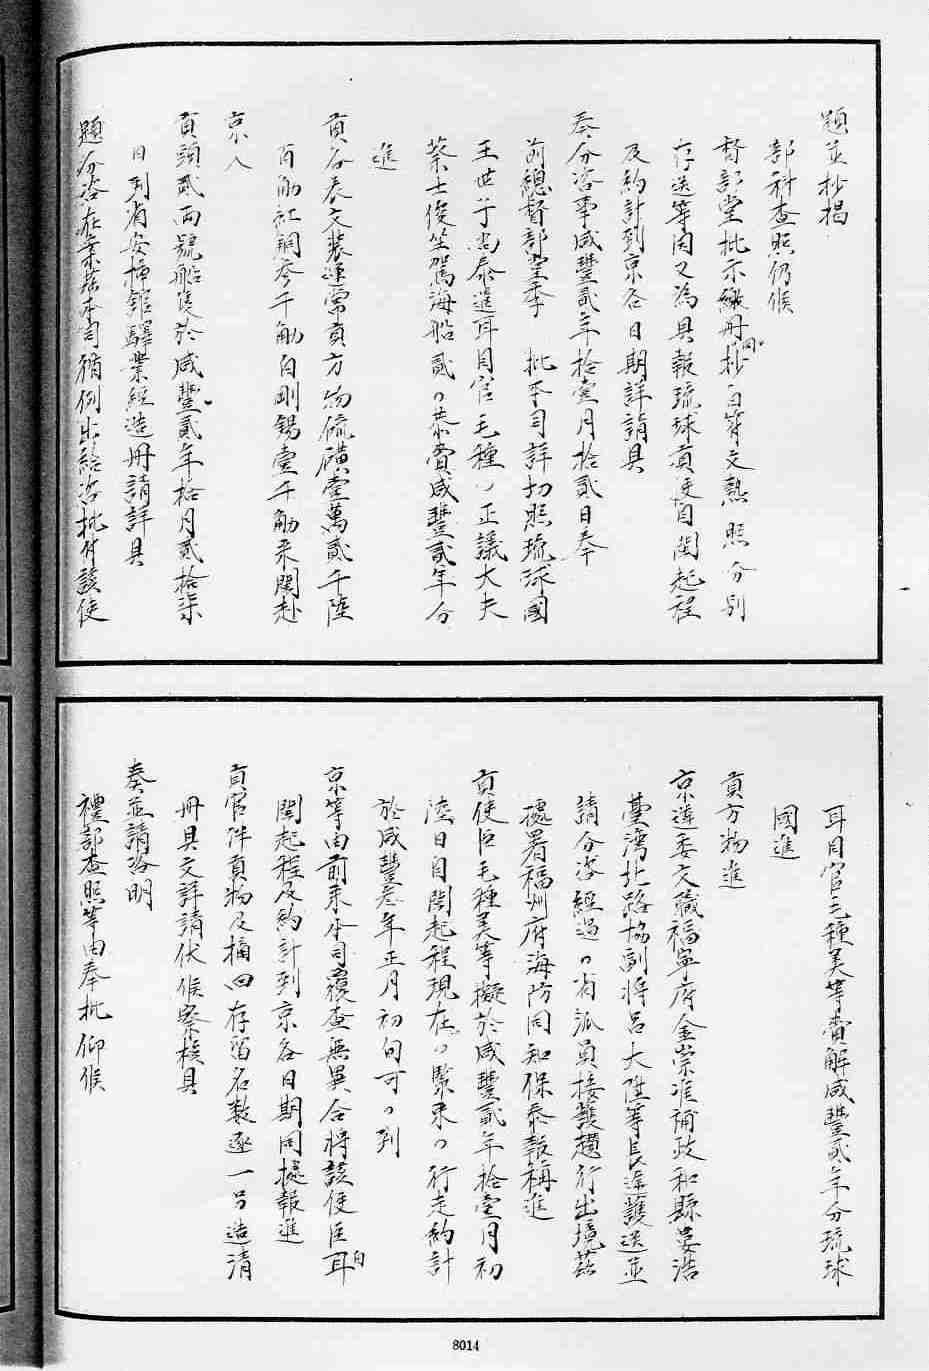 題並抄揭
部科查照仍候
督部堂批示繳冊抄同白管文熱照分別
存送等因又為具報琉球貢使自閩起程
及約計到京各日期詳請具
奏分咨事咸豐貳年拾壹月拾貳日奉
前總督部堂季 批本司詳切照琉球國
王世子尚泰遣耳目官毛種ヽ正議大夫
蔡士俊坐駕海船貳ヽ恭賫咸豐貳年分
進
貢各表文裝運常貢方物硫磺壹萬貳千陸
百觔紅銅叁千觔白剛錫壹千觔來閩赴
京入
貢頭貳兩號船隻於咸豐貳年拾月貳拾柒
日到省安插館驛業經造冊請詳具
題分咨在案茲本司循例出給咨批付該使
耳目官毛種美等賫解咸豐貳年分琉球
國進
貢方物進
京遴委文職福寧府金崇准補政和縣晏浩
臺灣北路協副將呂大陞等長途護送並
請分咨經過ヽ省派員接護趲行出境茲
據署福州府海防同知保泰報稱進
貢使臣毛種美等擬於咸豐貳年拾壹月初
陸日自閩起程現在ヽ緊束ヽ行走約計
於咸豐叁年正月初旬可ヽ到
京等由前來本司覆查無異合將該使臣耳自
閩起程及約計到京各日期同據報進
貢官伴貢物及摘回存留名數逐一另造清
冊具文詳請伏候察核具
奏並請咨明
禮部查照等由奉批仰候
8014